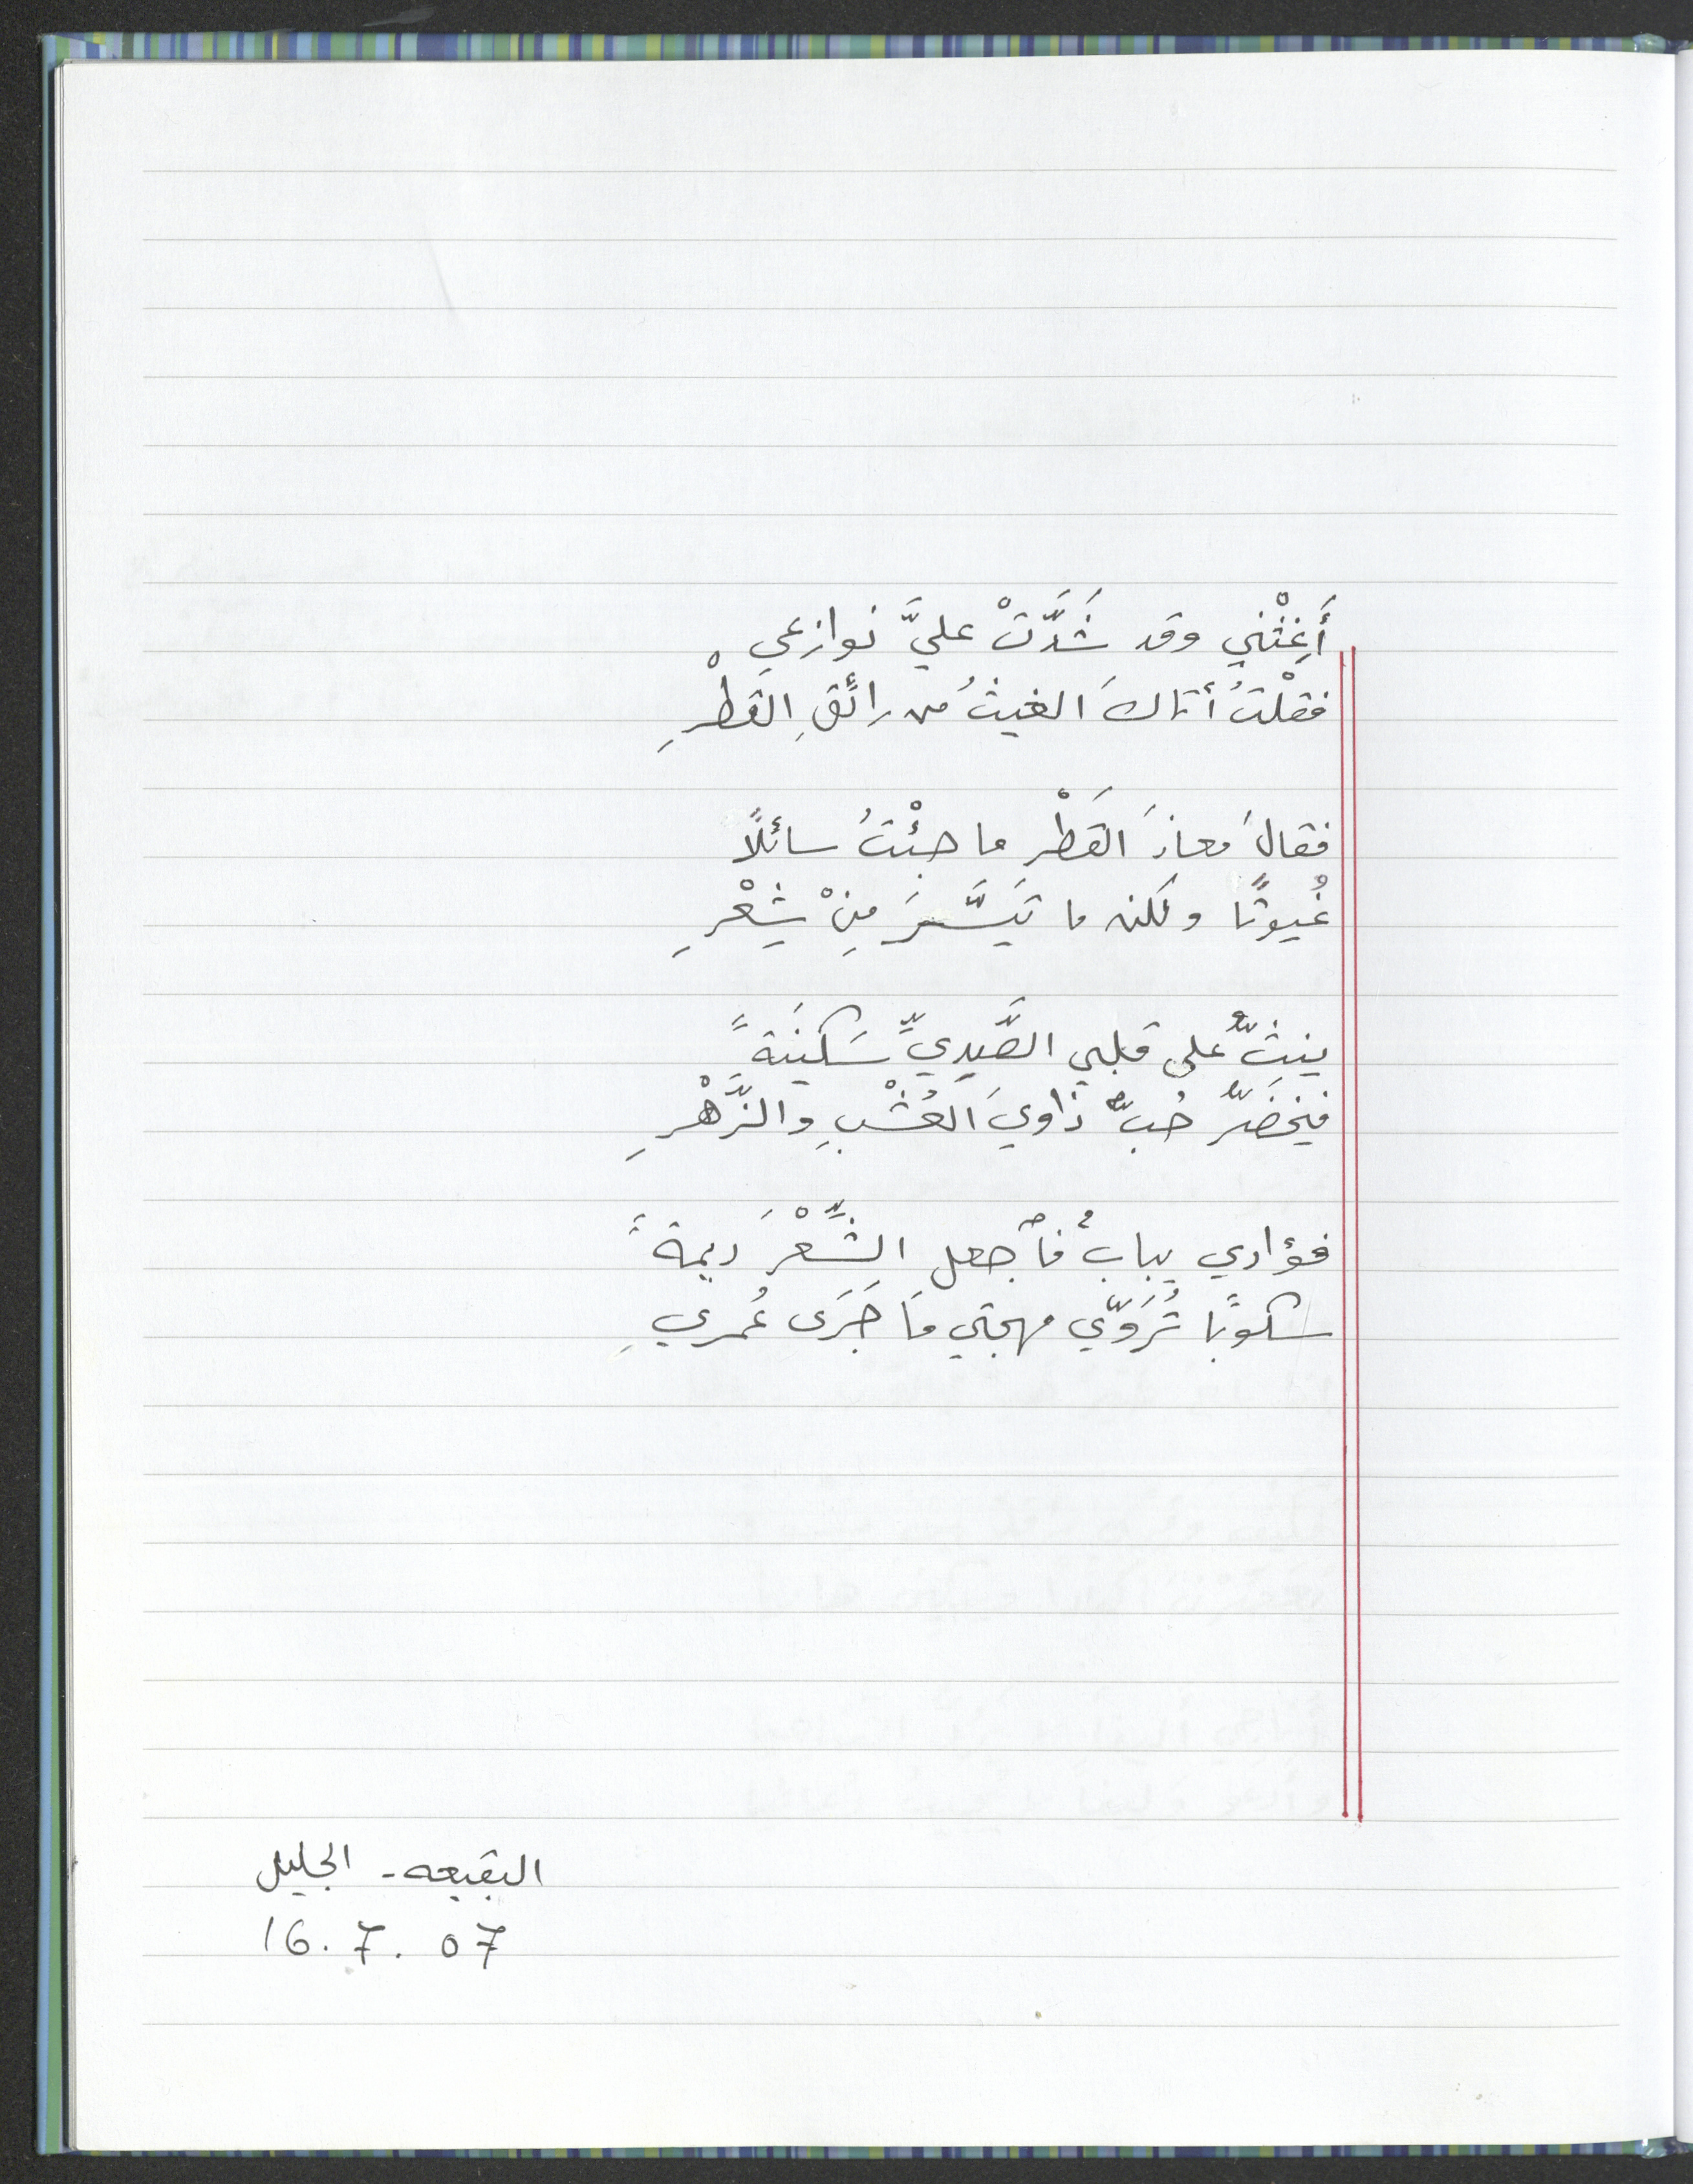 أَغِثْني وقد شَدَّتْ عليَّ نوازعي
فقلْتُ أتاكَ الغيثُ من رائقِ القَطْرِ
فقالَ معاذَ القَطْرِ ما جئْتُ سائلًا
غُيوثًا ولكن ما تَيَسَّرَ مِنْ شِعْرِ
ينثُّ على قلبي الصَّدِيِّ سَكينَةً
فيخضَرُّ حُبٌّ ذاوِيَ العُشْبِ والزَّهْرِ
فؤادي يبابٌ فٱجعل الشِّعْرَ ديمةً
سكوبًا تُرَوّي مهجتي مَا جَرَى عُمريِ
البقيعه - الجليل
16. 7. 07